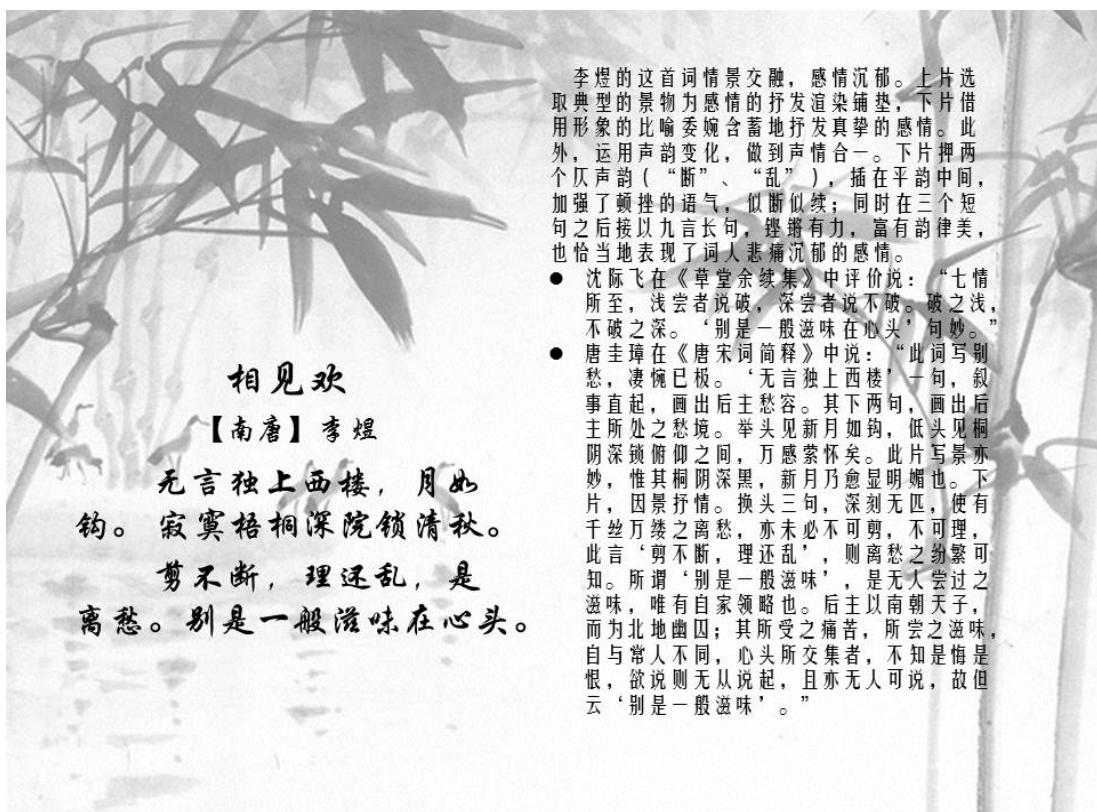 相见欢
【南唐】李煜
无言独上西楼，月如
钩。寂寞梧桐深院锁清秋。
剪不断，理还乱，是
离愁。别是一般滋味在心头。
李煜的这首词情景交融，感情沉郁。上片选
取典型的景物为感情的抒发渲染铺垫，下片借
用形象的比喻委婉含蓄地抒发真挚的感情。此
外，运用声韵变化，做到声情合一。下片押两
个仄声韵（“断”、“乱”），插在平韵中间，
加强了顿挫的语气，似断似续；同时在三个短
句之后接以九言长句，铿锵有力，富有韵律美，
也恰当地表现了词人悲痛沉郁的感情。
● 沈际飞在《草堂余续集》中评价说：“七情
所至，浅尝者说破，深尝者说不破。破之浅，
不破之深。‘别是一般滋味在心头’句妙。”
● 唐圭璋在《唐宋词简释》中说：“此词写别
愁，凄惋已极。‘无言独上西楼’一句，叙
事直起，画出后主愁容。其下两句，画出后
主所处之愁境。举头见新月如钩，低头见桐
阴深锁俯仰之间，万感萦怀矣。此片写景亦
妙，惟其桐阴深黑，新月乃愈显明媚也。下
片，因景抒情。换头三句，深刻无匹，使有
千丝万缕之离愁，亦未必不可剪，不可理，
此言‘剪不断，理还乱’，则离愁之纷繁可
知。所谓‘别是一般滋味’，是无人尝过之
滋味，唯有自家领略也。后主以南朝天子，
而为北地幽囚；其所受之痛苦，所尝之滋味，
自与常人不同，心头所交集者，不知是悔是
恨，欲说则无从说起，且亦无人可说，故但
云‘别是一般滋味’。”